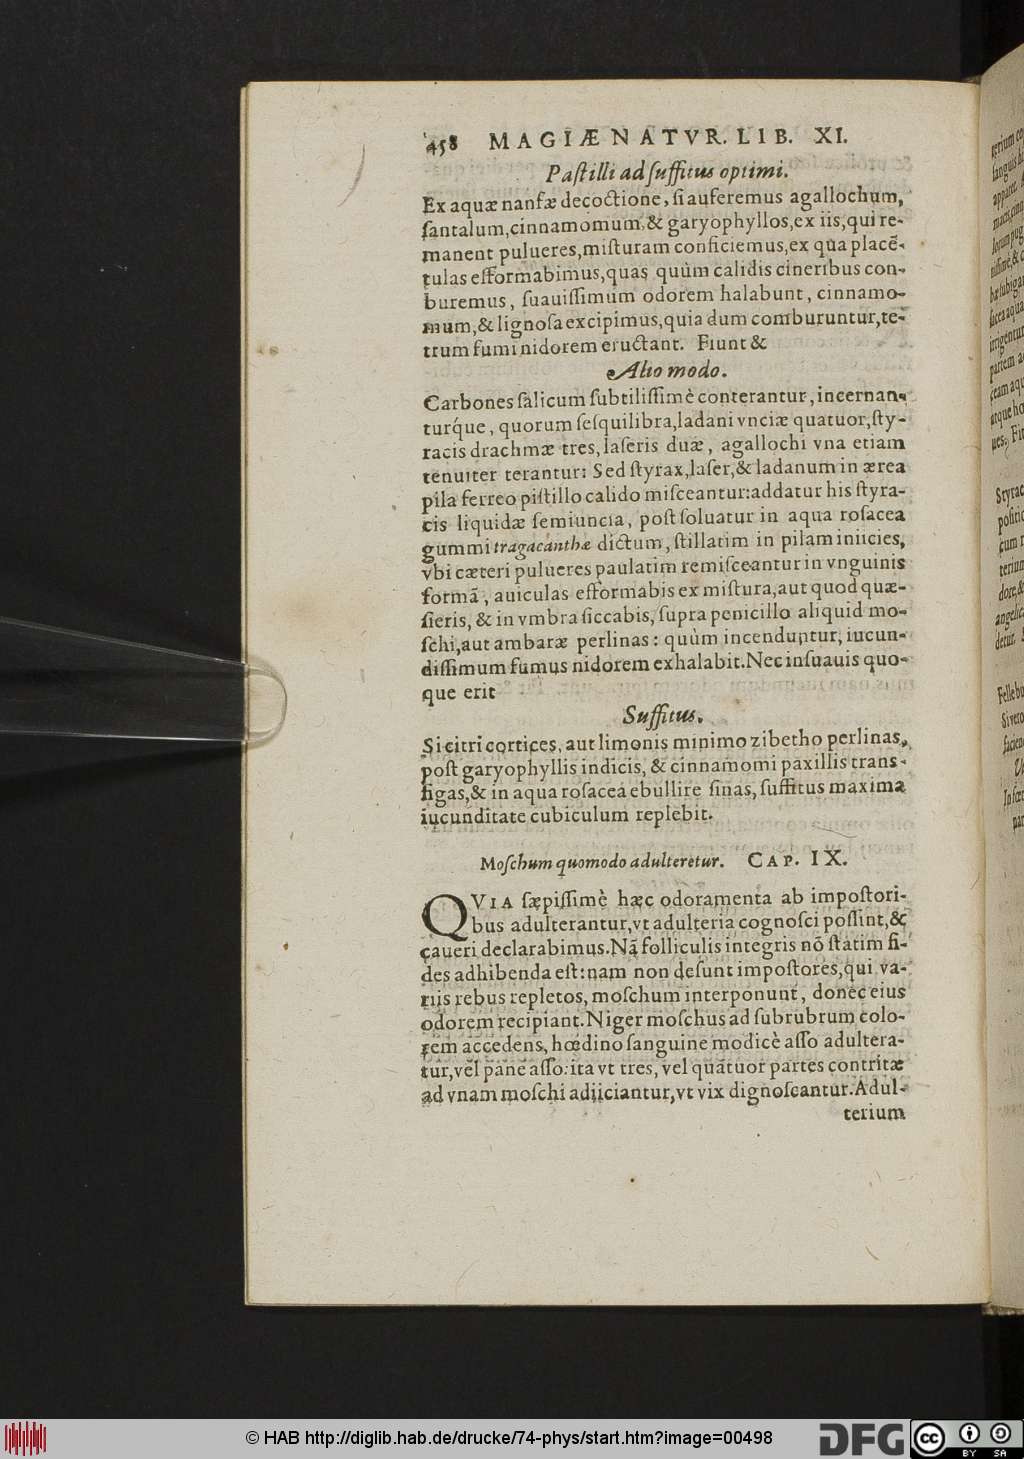 458 MAGIÆ NATVR. LIB. XI.
Paſtilli ad ſuffitus optimi.
Ex aquæ nanfæ decoctione, ſi auferemus agallochum,
ſantalum, cinnamomum, & garyophyllos, ex iis, qui re-
manent pulueres, miſturam conficiemus, ex qua placẽ-
tulas efformabimus, quas quùm calidis cineribus con-
buremus, ſuauiſſimum odorem halabunt, cinnamo-
mum, & lignoſa excipimus, quia dum comburuntur, te-
trum fumi nidorem eructant. Fiunt &
Alio modo.
Carbones ſalicum ſubtiliſſimè conterantur, incernan-
turq́ue, quorum ſeſquilibra, ladani vnciæ quatuor, ſty-
racis drachmæ tres, laſeris duæ, agallochi vna etiam
tenuiter terantur: Sed ſtyrax, laſer, & ladanum in ærea
pila ferreo piſtillo calido miſceantur: addatur his ſtyra-
cis liquidæ ſemiuncia, poſt ſoluatur in aqua roſacea
gummi tragacanthæ dictum, ſtillatim in pilam iniicies,
vbi cæteri pulueres paulatim remiſceantur in vnguinis
formã, auiculas efformabis ex miſtura, aut quod quæ-
ſieris, & in vmbra ſiccabis, ſupra penicillo aliquid mo-
ſchi, aut ambaræ perlinas: quùm incenduntur, iucun-
diſſimum fumus nidorem exhalabit. Nec inſuauis quo-
que erit
Suffitus.
Si citri cortices, aut limonis minimo zibetho perlinas,
poſt garyophyllis indicis, & cinnamomi paxillis trans-
figas, & in aqua roſacea ebullire ſinas, ſuffitus maxima
iucunditate cubiculum replebit.
Moſchum quomodo adulteretur. CAP. IX.
QVIA ſæpiſſimè hæc odoramenta ab impoſtori-
bus adulterantur, vt adulteria cognoſci poſſint, &
caueri declarabimus. Nã folliculis integris nõ ſtatim fi-
des adhibenda eſt: nam non deſunt impoſtores, qui va-
riis rebus repletos, moſchum interponunt, donec eius
odorem recipiant. Niger moſchus ad ſubrubrum colo-
rem accedens, hœdino ſanguine modicè aſſo adultera-
tur, vel pane aſſo: ita vt tres, vel quatuor partes contritæ
ad vnam moſchi adiiciantur, vt vix dignoſcantur. Adul-
terium
© HAB http://diglib.hab.de/drucke/74-phys/start.htm?image=00498
DFG
cc BY SA